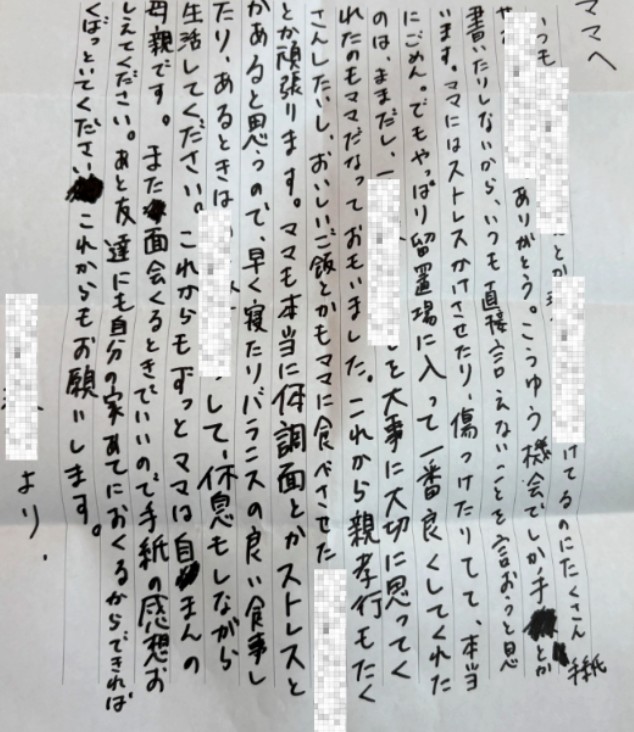 ママへ
いつも とか けてるのにたくさん
や ありがとう。こうゆう機会でしか、手 とか
手紙
書いたりしないから、いつも直接言えないことを言おうと思
います。ママにはストレスかけさせたり、傷つけたりてて、本当
にごめん。でもやっぱり留置場に入って一番良くしてくれた
のは、ままだし、一 を大事に大切に思ってく
れたのもママだなっておもいました。これから親孝行もたく
さんしたいし、おいしいご飯とかもママに食べさせた
とか頑張ります。ママも本当に体調面とかストレスと
かあると思うので、早く寝たりバラニスの良い食事し
たり、あるときは して、休息もしながら
生活してください。これからもずっとママは自まんの
母親です。また面会くるときでいいので手紙の感想お
しえてください。あと友達にも自分の家あてにおくるからできれば
くばっといてください これからもお願いします。
より.